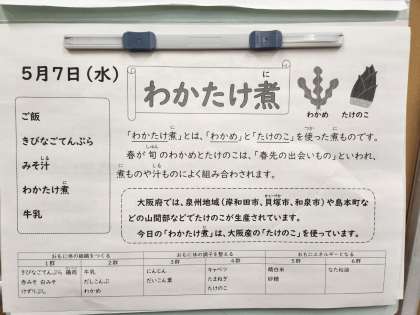 5月7日(水)
わかたけ煮
に
わかめ
たけのこ
ご飯
きびなごてんぷら
みそ汁
しる
わかたけ煮
に
牛乳
「わかたけ煮」とは、「わかめ」と「たけのこ」を使った煮ものです。
春が旬のわかめとたけのこは、「春先の出会いもの」といわれ、
煮ものや汁ものによく組み合わされます。
大阪府では、泉州地域(岸和田市、貝塚市、和泉市)や島本町な
どの山間部などでたけのこが生産されています。
今日の「わかたけ煮」は、大阪産の「たけのこ」を使っています。
おもに体の組織をつくる
おもに体の調子を整える
おもにエネルギーとなる
1群 2群 3群 4群 5群 6群
きびなごてんぷら 鶏肉 牛乳 にんじん キャベツ 精白米 なたね油
赤みそ 白みそ だしこんぶ だいこん葉 たまねぎ 砂糖
けずりぶし わかめ たけのこ